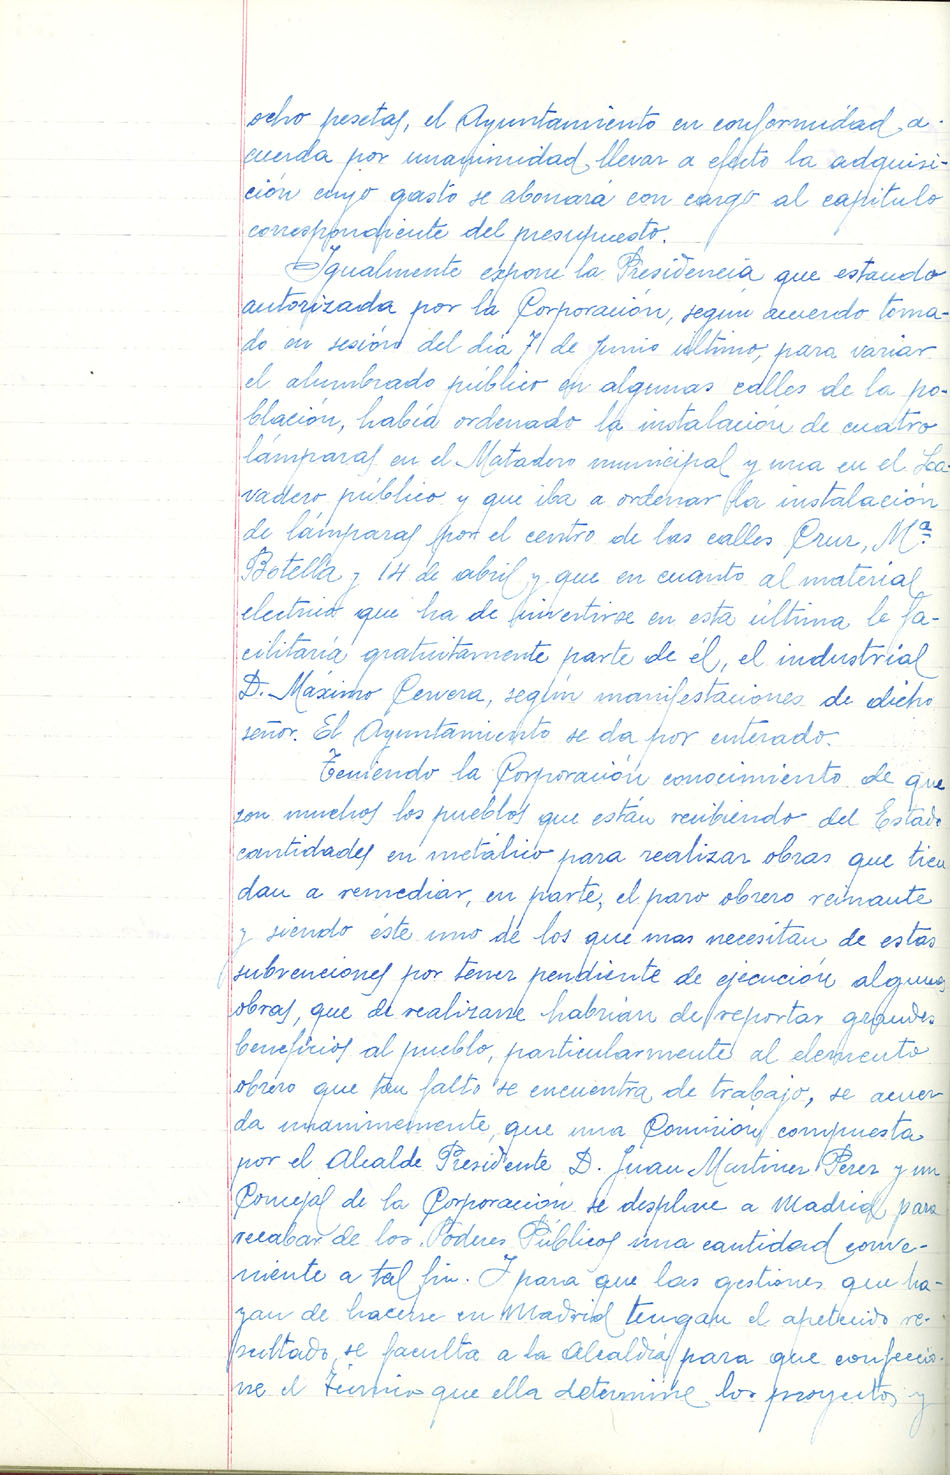 ocho pesetas, el Ayuntamiento en conformidad a-
cuerda por unanimidad llevar a efecto la adquisi-
ción cuyo gasto se abonará con cargo al capítulo
correspondiente del presupuesto.
Igualmente expone la Presidencia que estando
autorizada por la Corporación, según acuerdo toma-
do en sesión del día 7 de Junio último, para variar
el alumbrado público en algunas calles de la po-
blación, había ordenado la instalación de cuatro
lámparas en el Matadero municipal y una en el La-
vadero público y que iba a ordenar la instalación
de lámparas por el centro de las calles Cruz, Mª
Botella y 14 de abril y que en cuanto al material
electrico que ha de invertirse en esta última le fa-
cilitaría gratuitamente parte de él, el industrial
D. Máximo Cervera, según manifestaciones de dicho
señor. El Ayuntamiento se da por enterado.
Teniendo la Corporación conocimiento de que
son muchos los pueblos que están recibiendo del Estado
cantidades en metálico para realizar obras que tien
dan a remediar, en parte, el paro obrero reinante
y siendo éste uno de los que mas necesitan de estas
subvenciones por tener pendiente de ejecución algunas
obras, que de realizarse habrían de reportar grandes
beneficios al pueblo, particularmente al elemento
obrero que tan falto se encuentra de trabajo, se acuer
da unanimemente, que una Comisión compuesta
por el Alcalde Presidente D. Juan Martinez Perez y un
Concejal de la Corporación se desplace a Madrid para
recabar de los Poderes Públicos una cantidad conve-
niente a tal fin. Y para que las gestiones que ha-
yan de hacerse en Madrid tengan el apetecido re-
sultado, se faculta a la Alcaldía para que confeccio-
ne el Técnico que ella determine los proyectos y